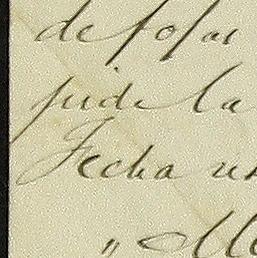 de fojas
pide la
Fecha un
"